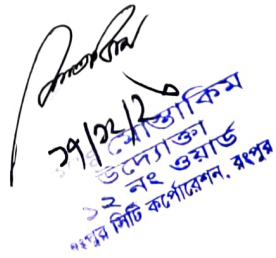 ১৭/১২/২০
মোস্তাকিম
উদ্যোক্তা
১২ নং ওয়ার্ড
রংপুর সিটি কর্পোরেশন, রংপুর